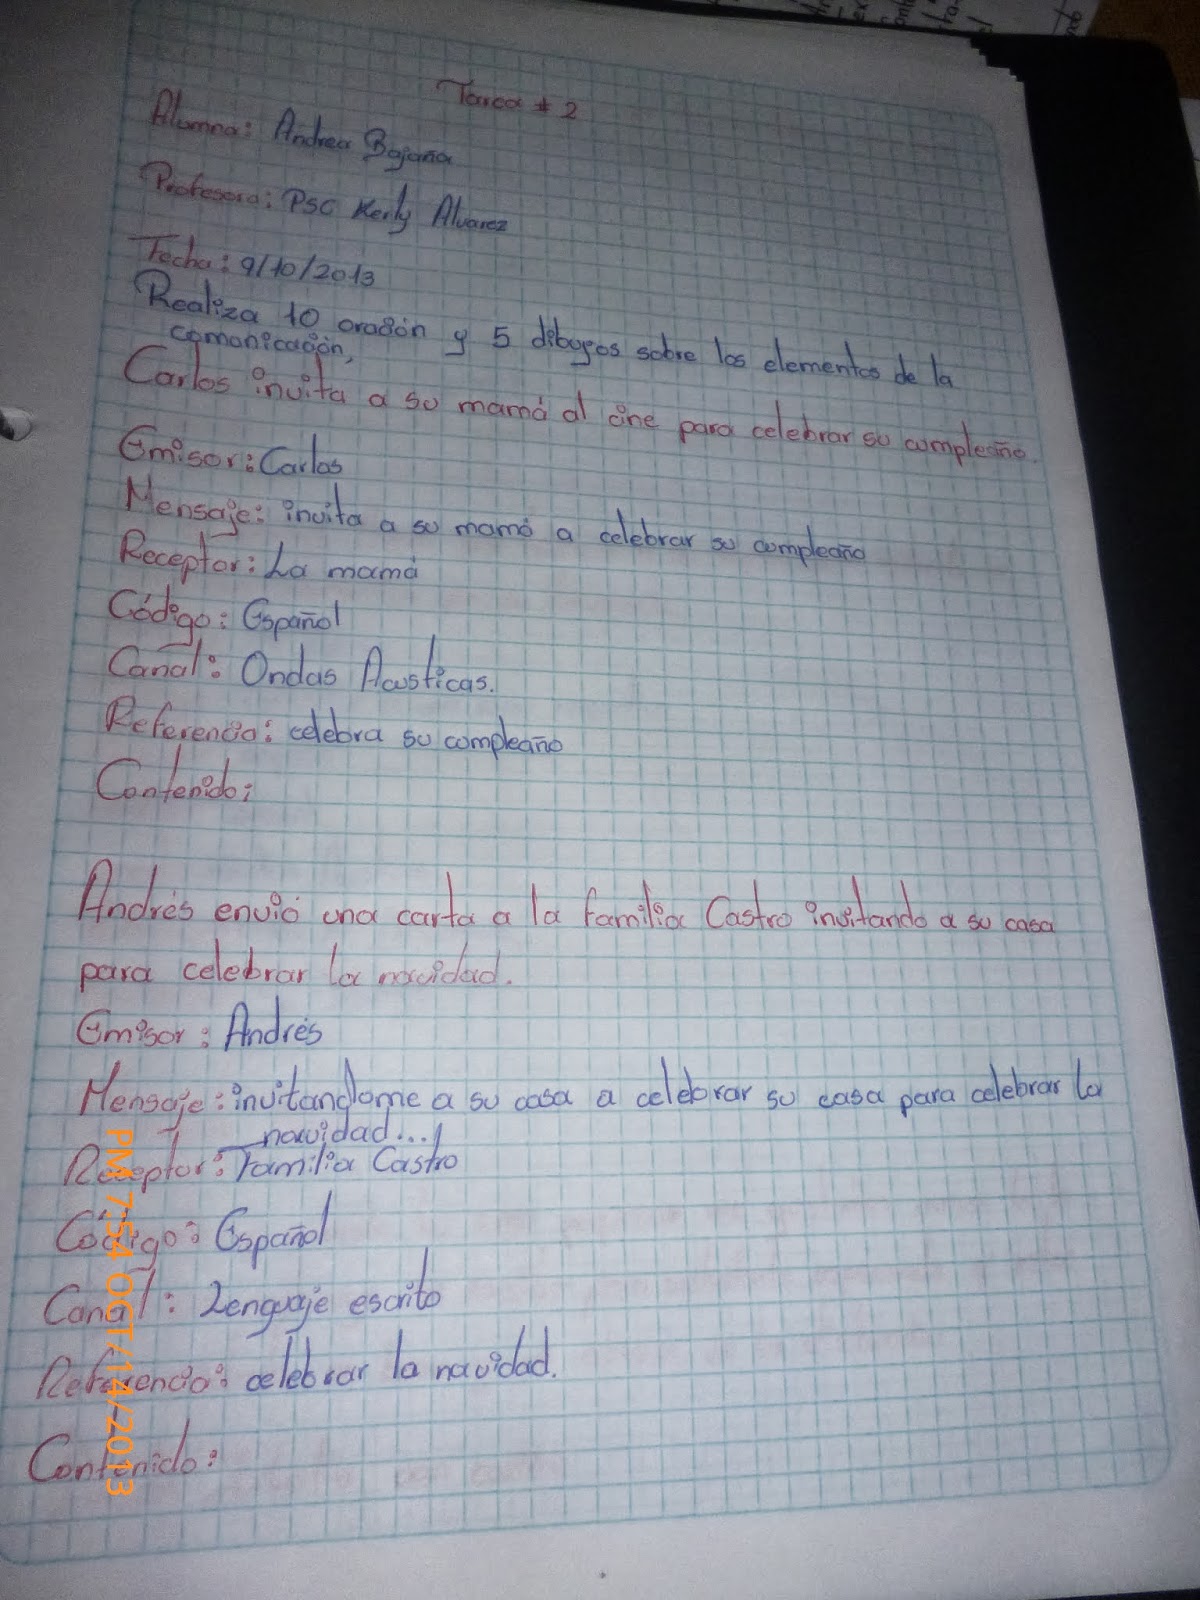 Tarea # 2
Alumna: Andrea Bajaña
Profesora: PSC Kerly Alvarez
Fecha: 9/10/2013
Realiza 10 oración y 5 dibugos sobre los elementos de la
comonicación,
Carlos invita a su mamá al cine para celebrar su cumpleaño.
Emisor: Carlos
Mensaje: invita a su mamá a celebrar su cumpleaño
Receptor: La mamá
Código: Español
Canal: Ondas Acusticas.
Referencia: celebra su cumpleaño
Contenido:
Andrés envió una carta a la familia Castro invitando a su casa
para celebrar la navidad.
Emisor: Andrés
Mensaje: invitandome a su casa a celebrar su casa para celebrar la
navidad...
Receptor: Familia Castro
Código: Español
Canal: Lenguaje escrito
Referencia: celebrar la navidad.
Contenido:
PM 7:54 OCT/14/2013